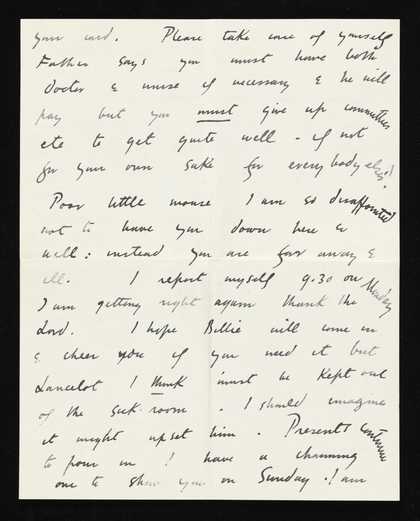 your card. Please take care of yourself
Father says you must have both
Doctor & nurse if necessary & he will
pay but you must give up committees
etc to get quite well - if not
for your own sake for everybody else's!
Poor little mouse I am so disappointed
not to have you down here &
well: instead you are far away &
ill. I report myself 9.30 on Monday
I am getting right again thank the
Lord. I hope Billie will come in
& cheer you if you need it but
Lancelot I think must be kept out
of the sick-room. I should imagine
it might upset him. Presents continue
to pour in! have a charming
one to show you on Sunday. I am